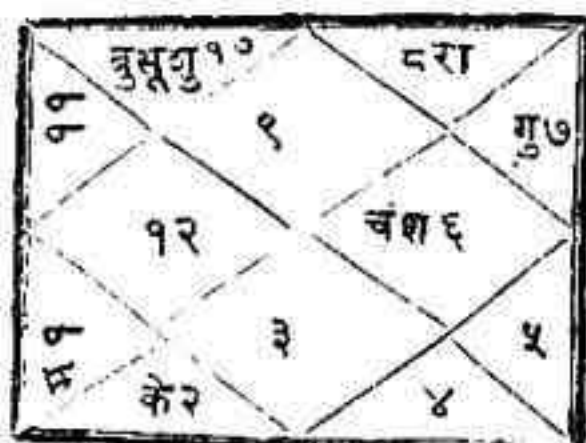 बुसूशु १०
८रा
११
९
गु७
१२
चंश६
मं१
३
५
के२
४